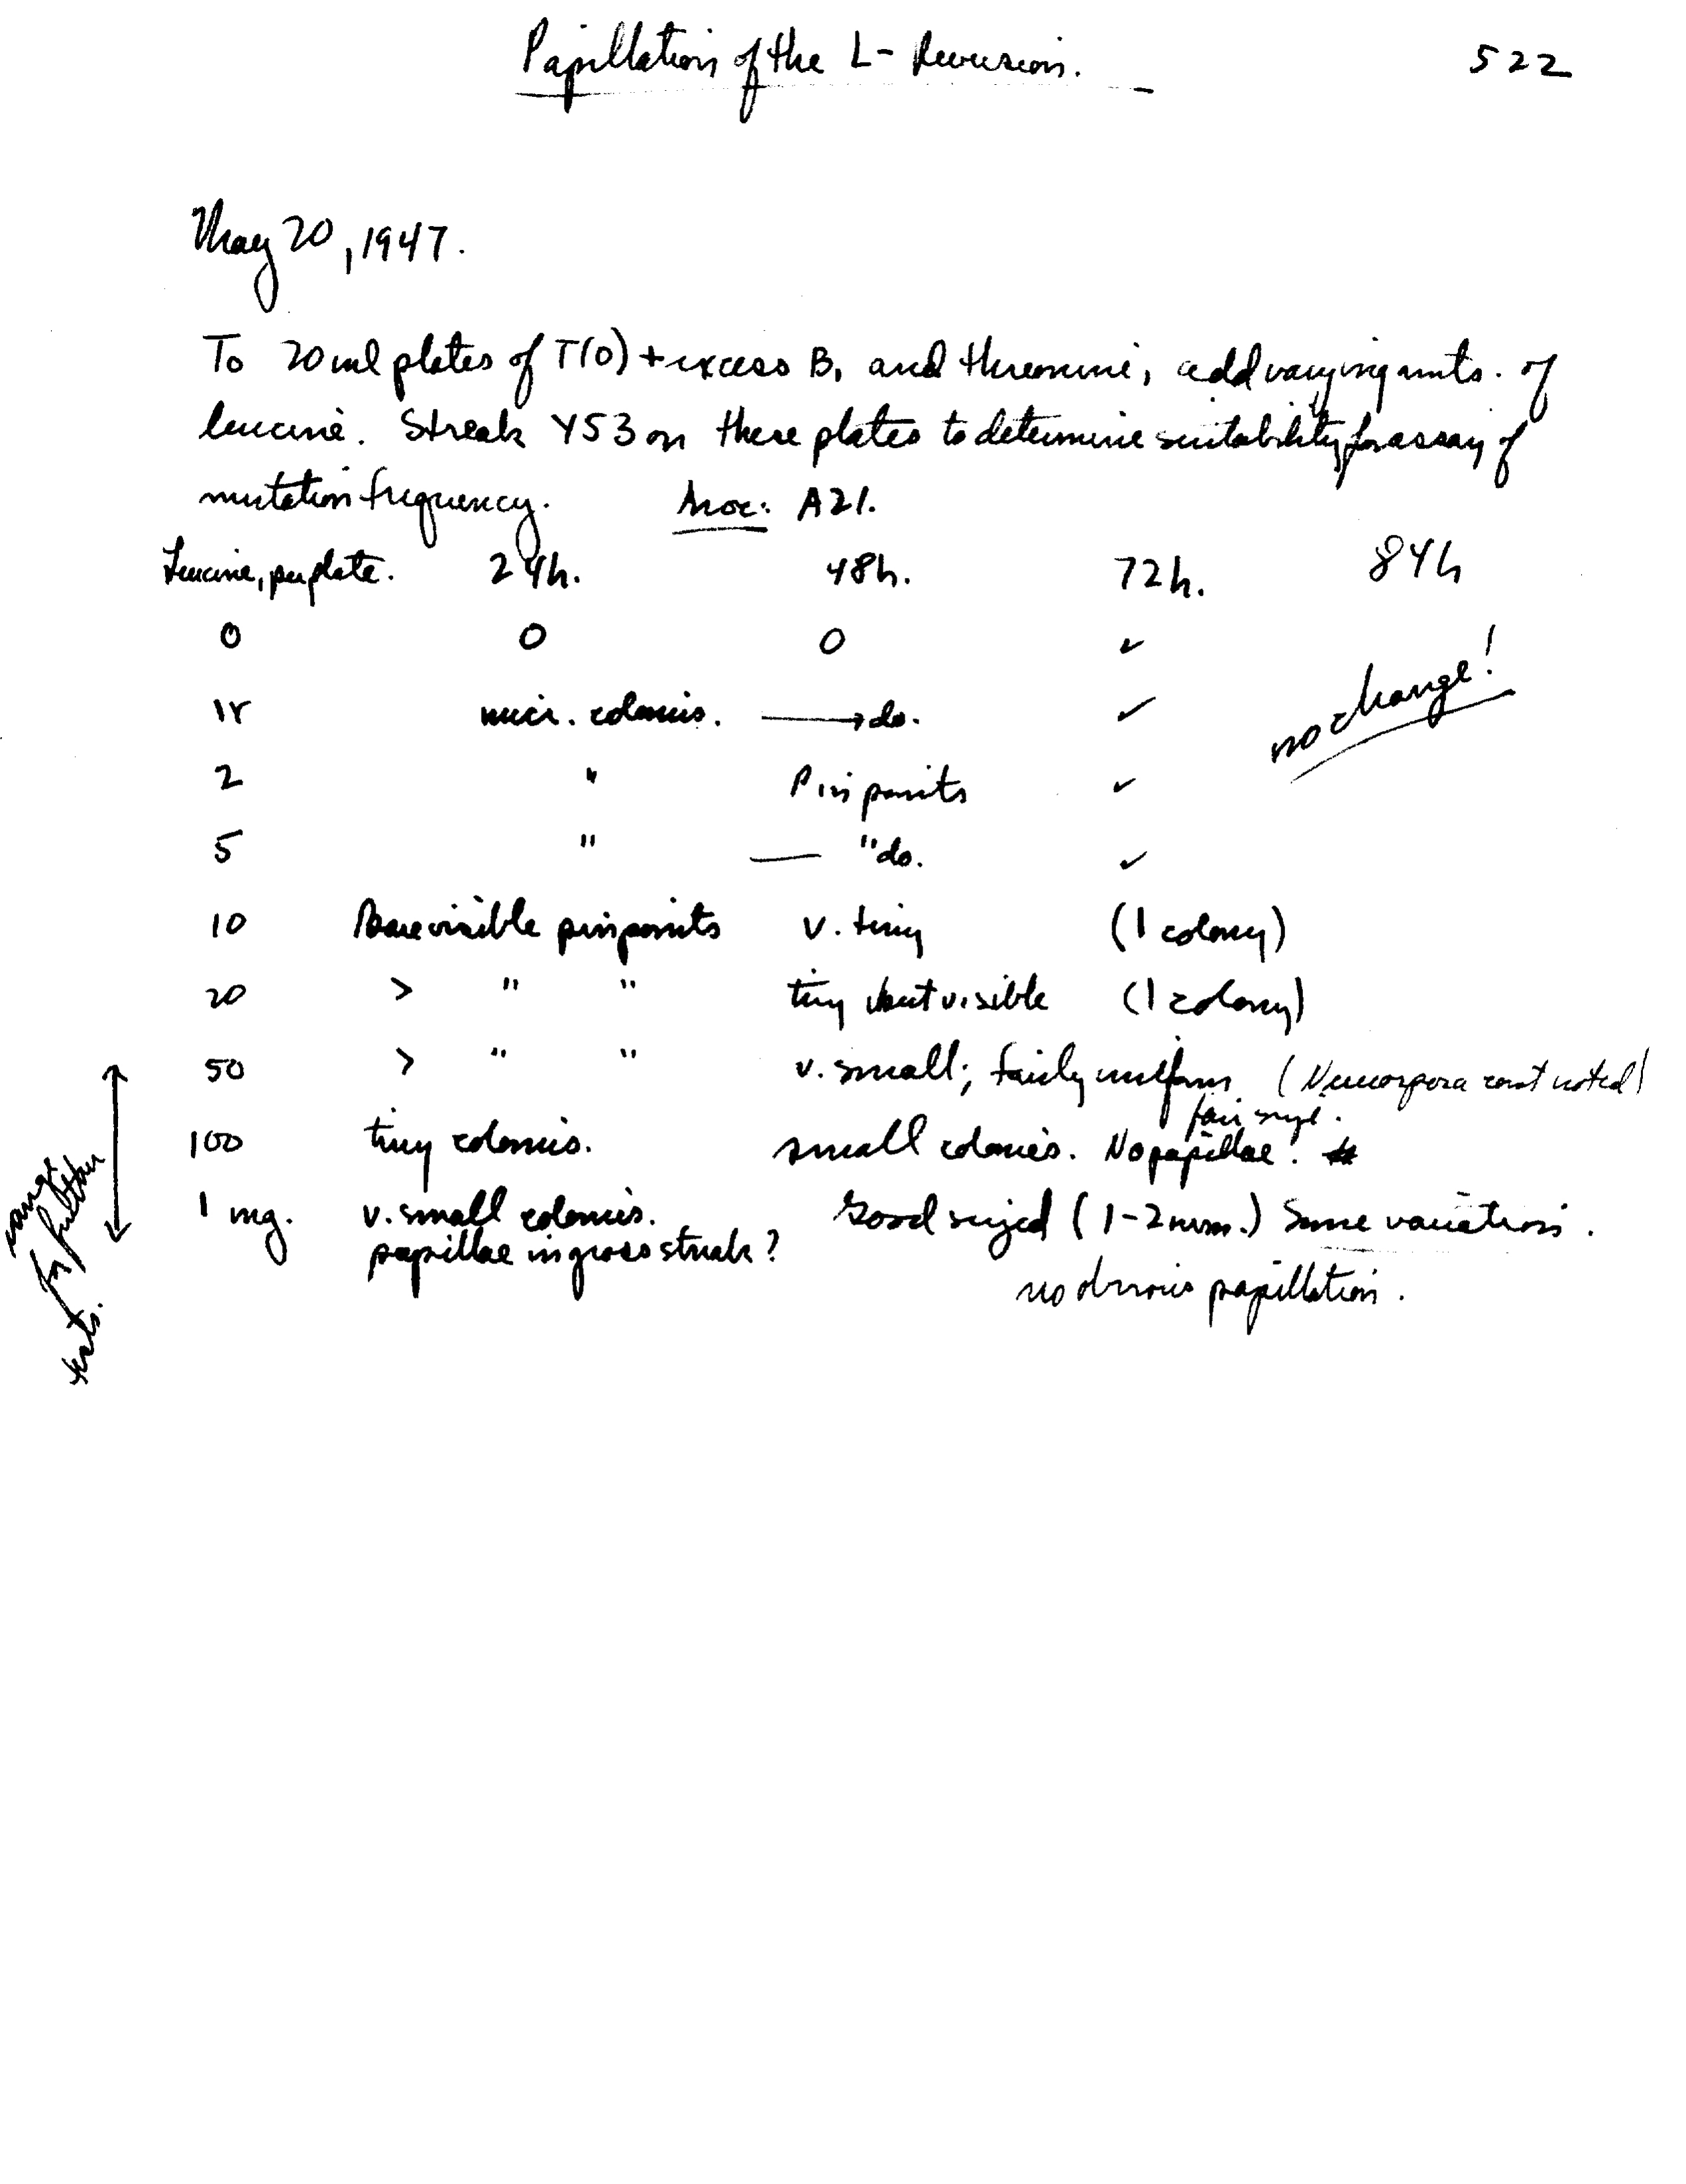 Papillation of the L- Reversion. 522
May 20, 1947.
To 20 ml plates of T(0) + excess B1 and threonine, add varying amts. of
leucine. Streak Y53 on these plates to determine suitability for assay of
mutation frequency. Inoc: A21.
Leucine, per plate. 24h. 48h. 72h. 84h
0 0 0 ✓
1γ micr. colonies. → do. ✓ no change!
2 " Pin points ✓
5 " — " do. ✓
10 Bare visible pinpoints v. tiny (1 colony)
20 > " " tiny but visible (1 colony)
50 > " " v. small; fairly uniform (Neurospora cont noted)
fair size.
100 tiny colonies. small colonies. No papillae!
1 mg. v. small colonies. Good sized (1-2 mm.) Some variation.
papillae in gross streak?
no obvious papillation.
range
for further
tests.